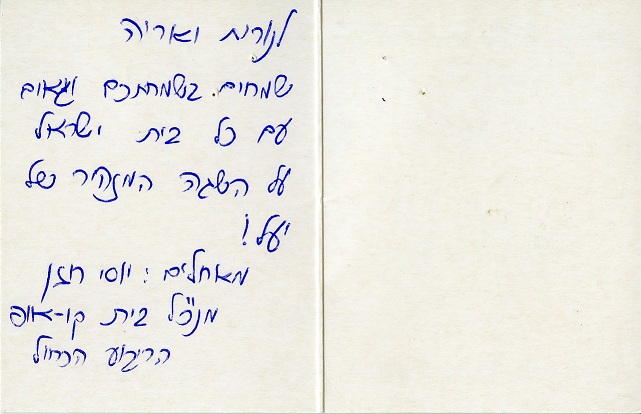 לנורית ואריה
שמחים בשמחתכם וגאים
עם כל בית ישראל
על השגה המזהיר של
יעל!
מאחלים: יוסי חזן
מנכ"ל בית קו-אופ
הריבוע הכחול